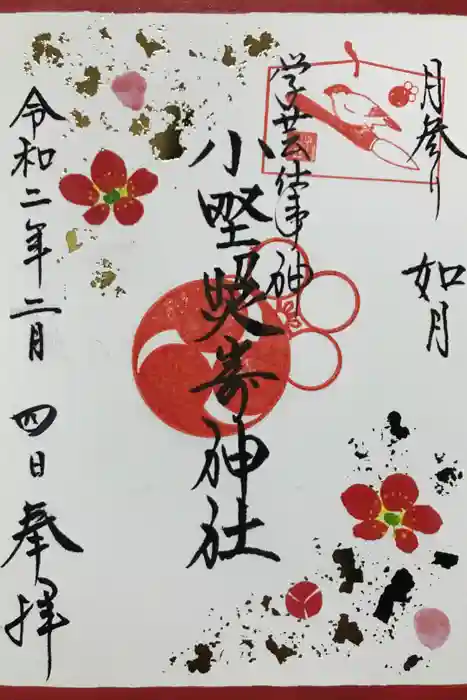 月参り 如月
学芸仕事神
小野照嵜神社
令和二年二月 四日 奉拝